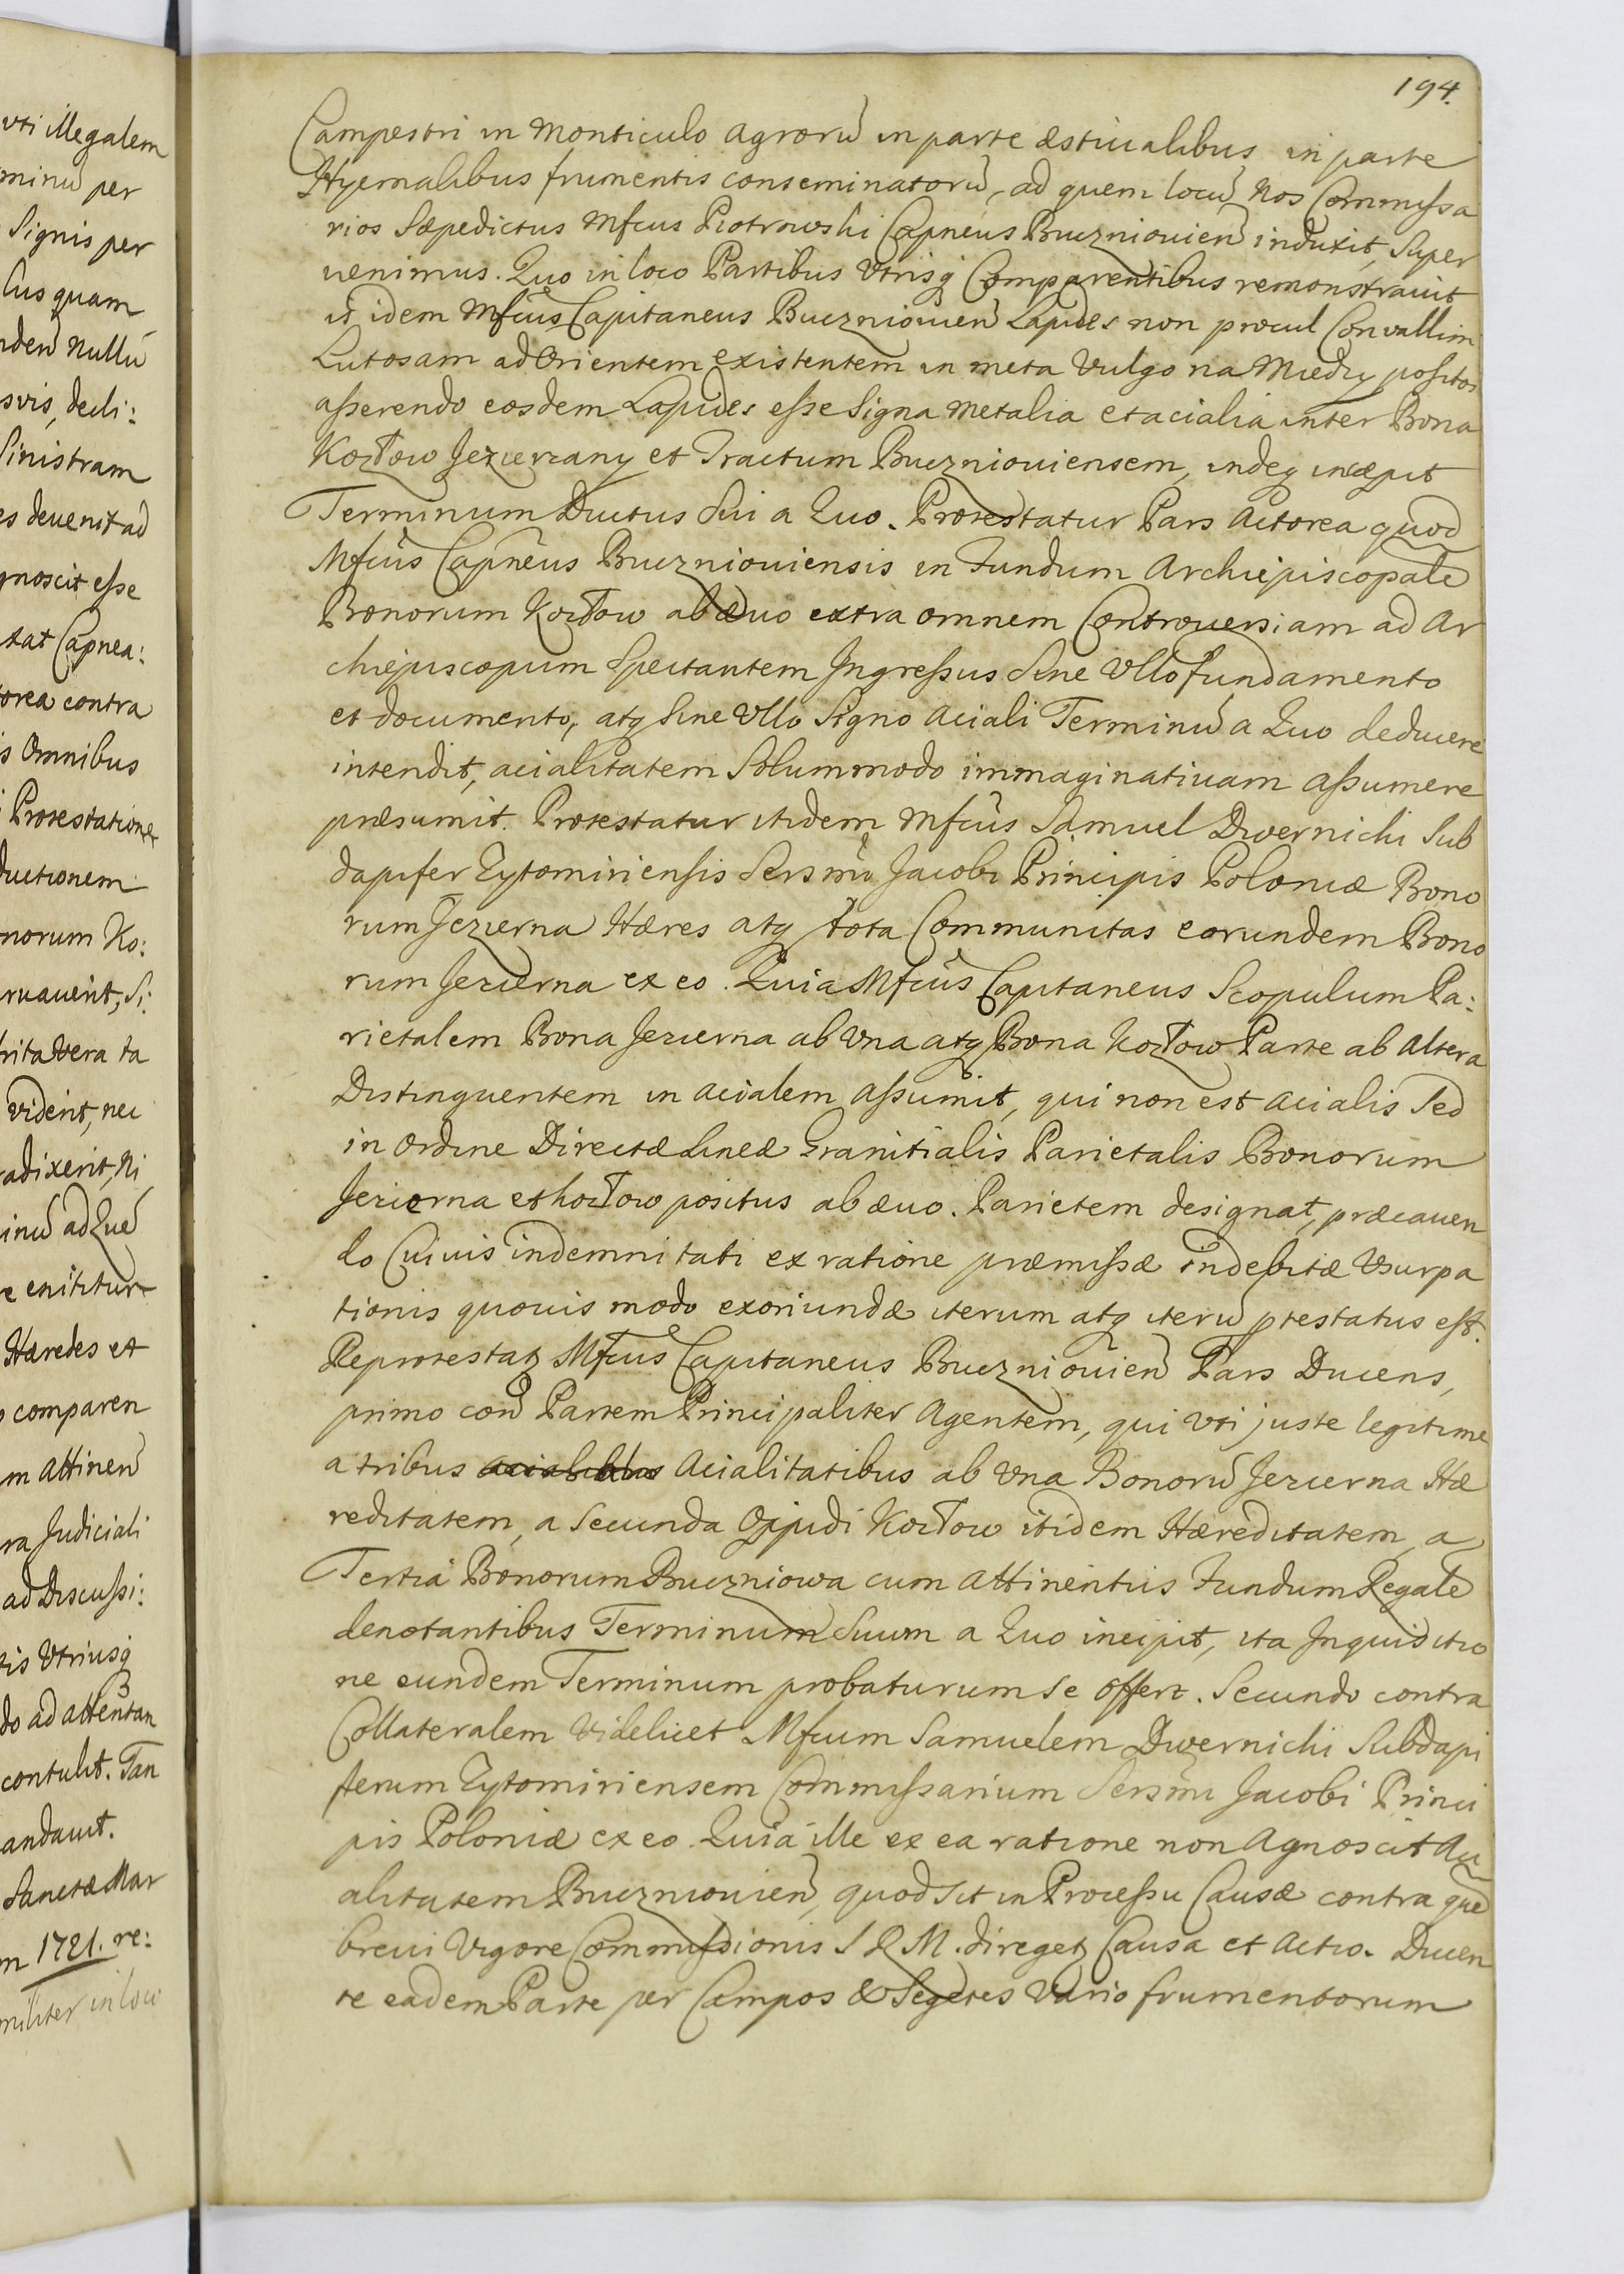 uti illegalem
minũ per
Signis per
lus quam
nden Nullũ
suis, decli:
Sinistram
es devenit ad
gnoscit esse
tat Capnea:
torea contra
is Omnibus
i Protestatione
ductionem
norum Ko:
ruauerit, Si:
trita Vera ta
viderit, nec
radixerit, Ni
inũ ad Quẽ
e enititur
Hæredes et
o comparen
m attinen
ra Judiciali
ad Discussi:
tis Utriusq
do ad attentan
contulit. Tan
andauit.
Sanctæ Mar
m 1721. re:
militer in loco
194.
Campestri in Monticulo Agrorũ in parte æstiualibus in parte
Hyemalibus frumentis conseminatorũ, ad quem locũ Nos Commissa
rios Sæpedictus Mfcus Piotrowski Capneus Bucznioviẽn induxit, Super
uenimus. Quo in loco Partibus Utrisq Comparentibus remonstrauit
is idem Mfcus Capitaneus Bucznioviẽn Lapides non procul Convallim
Lutosam ad Orientem existentem in meta Vulgo na Miedzy positos
asserendo eosdem Lapides esse Signa Metalia et acialia inter Bona
Kozłow Jezierzany et Tractum Buczniouiensem, indeq incæpit
Terminum Ductus Sui a Quo. Protestatur Pars Actorea quod
Mfcus Capneus Buczniouiensis in Fundum Archiepiscopale
Bonorum Kozłow ab æuo extra omnem Controuersiam ad Ar
chiepiscopum Spectantem Ingressus Sine Ullo fundamento
et documento, atq Sine Ullo Signo Aciali Terminũ a Quo deducere
intendit, acialitatem Solummodo immaginatiuam assumere
præsumit. Protestatur itidem Mfcus Samuel Dwernicki Sub
dapifer Zytomiriensis Sersmi Jacobi Principis Poloniæ Bono
rum Jezierna Hæres atq tota Communitas eorundem Bono
rum Jezierna ex eo. Quia Mfcus Capitaneus Scopulum Pa:
rietalem Bona Jezierna ab Una atq Bona Kozłow Parte ab Altera
Distinguentem in acialem assumit, qui non est acialis Sed
in Ordine Directæ Lineæ Granitialis Parietalis Bonorum
Jezierna et Kozłow positus ab æuo. Parietem designat, præcauen
do Cuiuis indemnitati ex ratione præmissæ indebitæ Usurpa
tionis quouis modo exoriundæ iterum atq iterũ ptestatus est.
Reprotestatq Mfcus Capitaneus Bucznioviẽn Pars Ducens,
primo con Partem Principaliter Agentem, qui Uti juste legitime
a tribus acialibus Acialitatibus ab Una Bonorũ Jezierna Hæ
reditatem, a Secunda Oppidi Kozłow itidem Hæreditatem, a
Tertia Bonorum Buczniowa cum Attinentiis Fundum Regale
denotantibus Terminum Suum a Quo incipit, ita Inquisitio
ne eundem Terminum probaturum se offert. Secundo contra
Collateralem Videlicet Mfcum Samuelem Dwernicki Subdapi
ferum Zytomiriensem Commissarium Sersmi Jacobi Princi
pis Poloniæ ex eo. Quia ille ex ea ratione non Agnoscit Aci
alitatem Bucznioviẽn, quod Sit in Processu Causæ contra quẽ
breui Vigore Commissionis S R M. diregetq Causa et Actio. Ducen
te eadem Parte per Campos & Segetes Vario frumentorum